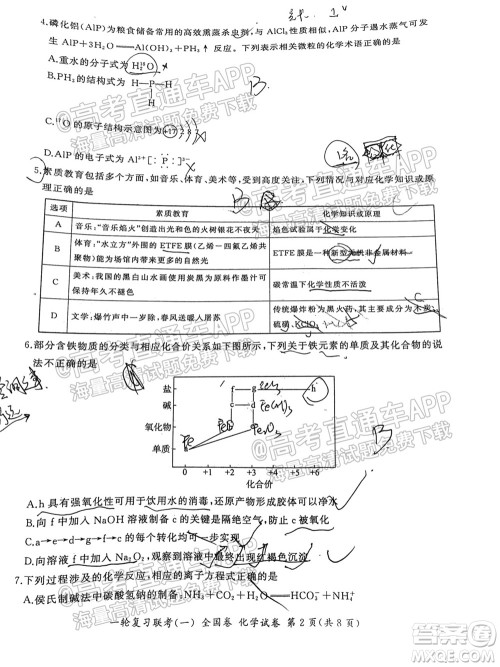 4.磷化铝(AlP)为粮食储备常用的高效熏蒸杀虫剂，与AlN性质相似,AlP分子遇水蒸气可发
生 AlP+3H₂O══Al(OH)₃+PH₃↑反应。下列表示相关微粒的化学术语正确的是
A.重水的分子式为
B.PH₃的结构式为 H—P—H
H
C.¹⁸O 的原子结构示意图为
D.AlP 的电子式为 Al³⁺[:P:]³⁻
B
5.素质教育包括多个方面,如音乐、体育、美术等,受到高度关注,下列情况与对应化学知识或原
理正确的是
选项 素质教育 化学知识或原理
A 音乐:“音乐焰火”创造出光和色的火树银花不夜天 焰色试验属于化学变化
B 体育:“水立方”外围的 ETFE 膜(乙烯-四氟乙烯共
聚物)能为场馆内带来更多的自然光 ETFE 膜是一种新型无机非金属材料
C 美术:我国的黑白山水画使用炭黑为原料作墨汁因
保持时间年久不褪色 碳常温下化学性质不活泼
D 文学:爆竹声中一岁除,春风送暖入屠苏 传统爆炸粉为黑火药,其主要成分为木炭、
硫磺、KClO₃
6.部分含铁物质的分类与相应化合价关系如下图所示,下列关于铁元素的单质及其化合物的说
法不正确的是
盐
碱
氧化物
单质
f g h
c d
0 +1 +2 +3 +4 +5 +6
化合价
B
A.h 具有强氧化性可用于饮用水的消毒,还原产物可形成胶体可以净水
B.向 f 中加入 NaOH 溶液制备 c 的关键是隔绝空气,防止 c 被氧化
C.a→e→d→g→f→c→d 的每个转化均可一步实现
D.向溶液 f 中加入 Na₂O₂,观察到溶液中最终出现红褐色沉淀
7.下列过程涉及的化学反应,相应的离子方程式正确的是
A.侯氏制碱法中碳酸氢钠的制备:NH₃+CO₂+H₂O══HCO₃⁻+NH₄⁺
一轮复习联考(一) 全国卷 化学试卷 第2页(共8页)
@高考直通车APP
海量高清试题免费下载
@高考直通车APP
海量高清试题免费下载